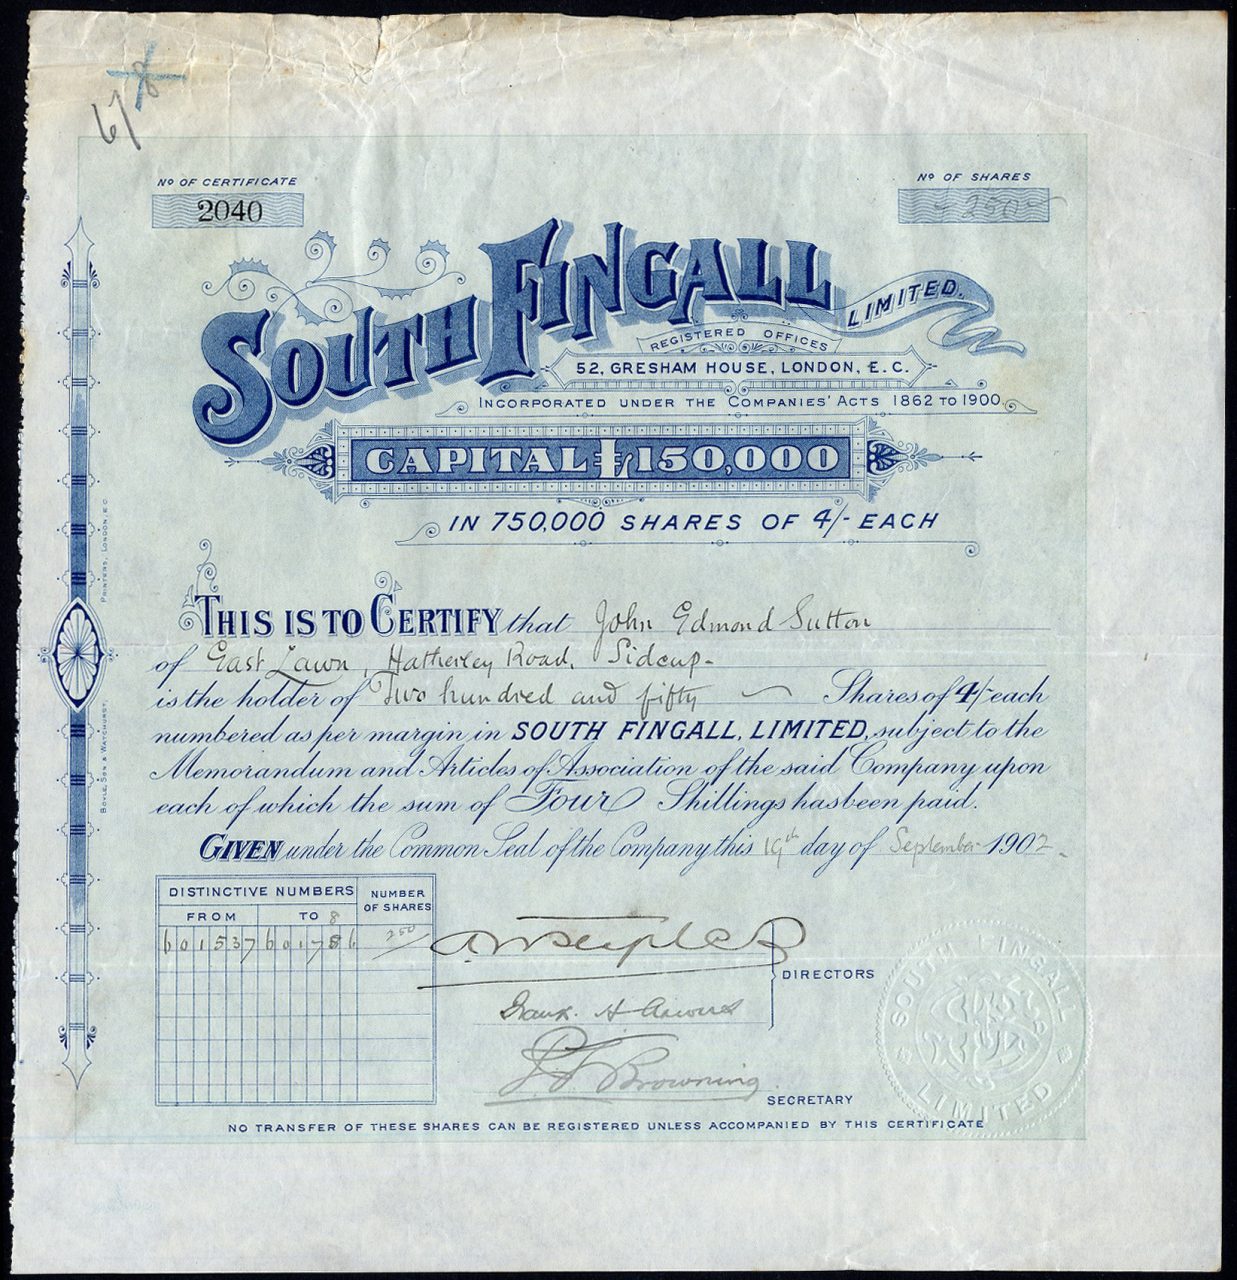 Nº OF CERTIFICATE
2040
Nº OF SHARES
250
SOUTH FINGALL LIMITED.
REGISTERED OFFICES
52, GRESHAM HOUSE, LONDON, E.C.
INCORPORATED UNDER THE COMPANIES' ACTS 1862 TO 1900.
CAPITAL £150,000
IN 750,000 SHARES OF 4/- EACH
THIS IS TO CERTIFY that John Edmond Sutton
of East Lawn, Hatherley Road, Sidcup-
is the holder of Two hundred and fifty Shares of 4/- each
numbered as per margin in SOUTH FINGALL, LIMITED, subject to the
Memorandum and Articles of Association of the said Company upon
each of which the sum of Four Shillings has been paid.
GIVEN under the Common Seal of the Company this 19th day of September 1902
DISTINCTIVE NUMBERS
NUMBER OF SHARES
FROM
TO
601537 601786 250
DIRECTORS
Browning
SECRETARY
NO TRANSFER OF THESE SHARES CAN BE REGISTERED UNLESS ACCOMPANIED BY THIS CERTIFICATE
SOUTH FINGALL LIMITED
BOYLE, SON & WATCHURST,
PRINTERS, LONDON, E.C.